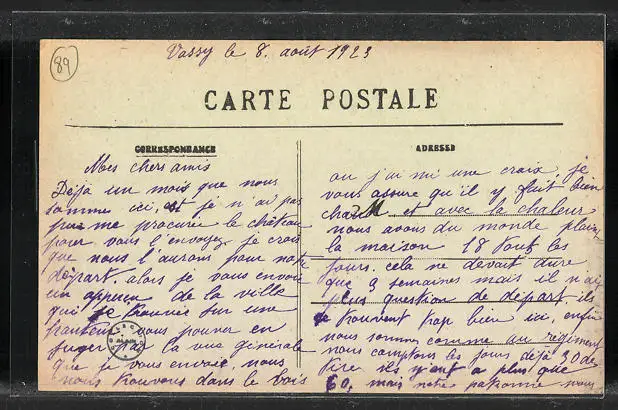 89
Vassy le 8. août 1923
CARTE POSTALE
CORRESPONDANCE
ADRESSE
Mes chers amis
Déjà un mois que nous
somme ici, et je n'ai pas
pue me procurer le château
pour vous l'envoyer je crois
que nous l'aurons pour notre
départ. alors je vous envoie
un appercu de la ville
qui se trouvée sur une
hauteur vous pouver en
juger par la vue générale
que je vous envoie, nous
nous trouvons dans le bois
ou j'ai mi une croix, je
vous assure qu'il y fait bien
chaud et avec la chaleur
nous avons du monde plain
la maison 18 tout les
jours. cela ne devait dure
que 3 semaines mais il n'ai
plus question de départ ils
se trouvent trop bien ici, enfin
nous sommes comme au régiment
nous comptons les jours déjà 30 de
tire ils n'ent a plus que
60, mais notre patronne nous